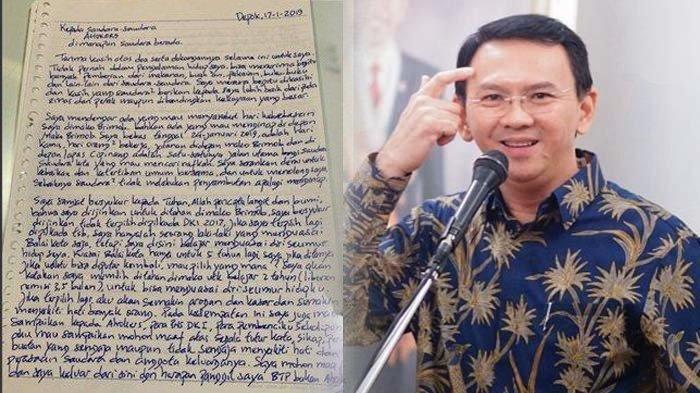 Depok, 17-1-2019
Kepada Saudara-Saudara
AHOKERS
di manapun saudara berada.
Terima kasih atas doa serta dukungannya selama ini untuk saya.
Tidak pernah dalam pengalaman hidup saya, bisa menerima begitu
banyak pemberian dari makanan, buah-an, pakaian, buku-buku
dan lain-lain dari Saudara-Saudara. Saya merasa begitu dikasihi
dan kasih yang saudara² berikan kepada saya lebih baik dari pada
emas dan perak maupun dibandingkan kekayaan yang besar.
Saya mendengar ada yang mau menyambut hari kebebasan
saya di mako Brimob. Bahkan ada yang mau menginap di depan
Mako Brimob. Saya bebas tanggal 24 januari 2019, adalah hari
Kamis, hari orang² bekerja, jalanan di depan mako Brimob dan di
depan lapas Cipinang adalah satu-satunya jalan utama bagi saudara
saudara kita yang mau mencari nafkah. Saya sarankan demi untuk
kebaikan dan ketertiban umum bersama, dan untuk menolong saya,
sebaiknya saudara² tidak melakukan penyambutan apalagi menginap.
Saya sangat bersyukur kepada Tuhan, Allah pencipta langit dan bumi,
bahwa saya diijinkan untuk ditahan di mako Brimob. Saya bersyukur
diijinkan tidak terpilih di pilkada DKI 2017. Jika saya terpilih lagi
di pilkada tsb, saya hanyalah seorang laki-laki yang menguasai
Balai Kota saja, tetapi saya disini belajar menguasai diri seumur
hidup saya. Kuasai Balai kota hanya untuk 5 tahun lagi. Saya jika ditanya
jika waktu bisa diputar kembali, mau pilih yang mana? Saya akan
katakan saya memilih ditahan di mako utk belajar 2 tahun (liburan
remisi 3,5 bulan) untuk bisa menguasai diri seumur hidupku.
Jika terpilih lagi, aku akan semakin arogan dan kasar dan semakin
menyakiti hati banyak orang. Pada kesempatan ini saya juga mau
sampaikan kepada Ahokers, para PNS DKI, para pembenciku sekalipun
aku mau sampaikan mohon maaf atas segala tutur kata, sikap, per
buatan yang sengaja maupun tidak sengaja menyakiti hati dan
perasaan saudara dan anggota keluarganya. Saya mohon maaf
dan saya keluar dari sini dengan harapan panggil saya BTP bukan Ahok